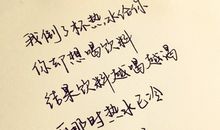 我倒了杯热水给你
你却想喝饮料
结果饮料越喝越渴
那时热水已冷